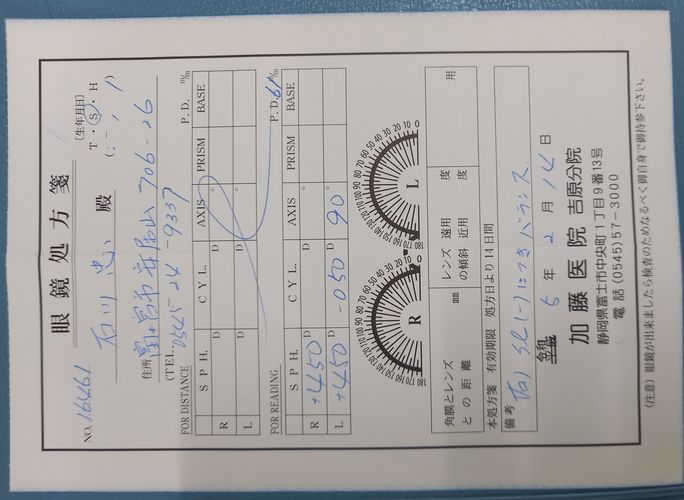 眼鏡処方箋
NO. 16461
〔生年月日〕
T・S・H
石川 忠 殿
住所 富士宮市 706-26
(TEL. 0545-24-9337
FOR DISTANCE P.D. m/m
S P H. C Y L. AXIS PRISM BASE
R D D °
L D D °
FOR READING P.D. 61 m/m
S P H. C Y L. AXIS PRISM BASE
R +450 D D °
L +450 D -050 D 90 °
180 170 160 150 140 130 120 110 100 90 80 70 60 50 40 30 20 10 0
R
180 170 160 150 140 130 120 110 100 90 80 70 60 50 40 30 20 10 0
L
角膜とレンズとの距離 ㎜ レンズの傾斜 遠用 度 近用 度 用
本処方箋 有効期限 処方日より14日間
備考 (右) sl(-)につき バランス
令和 5年 2月 14日
加藤医院 吉原分院
静岡県富士市中央町1丁目9番13号
電話 (0545)57-3000
(注意) 眼鏡が出来ましたら検査のためなるべく御自身で御持参下さい。